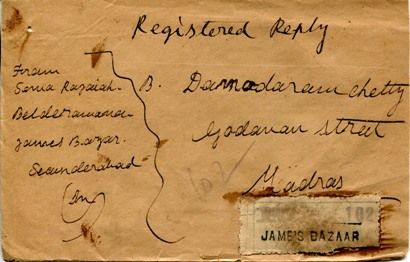 Registered Reply
From
Soma Rajaiah
James Bazar.
Secunderabad
(Dn)
B. Damodaram chetty
Godavari street
Madras
102
JAME'S BAZAAR